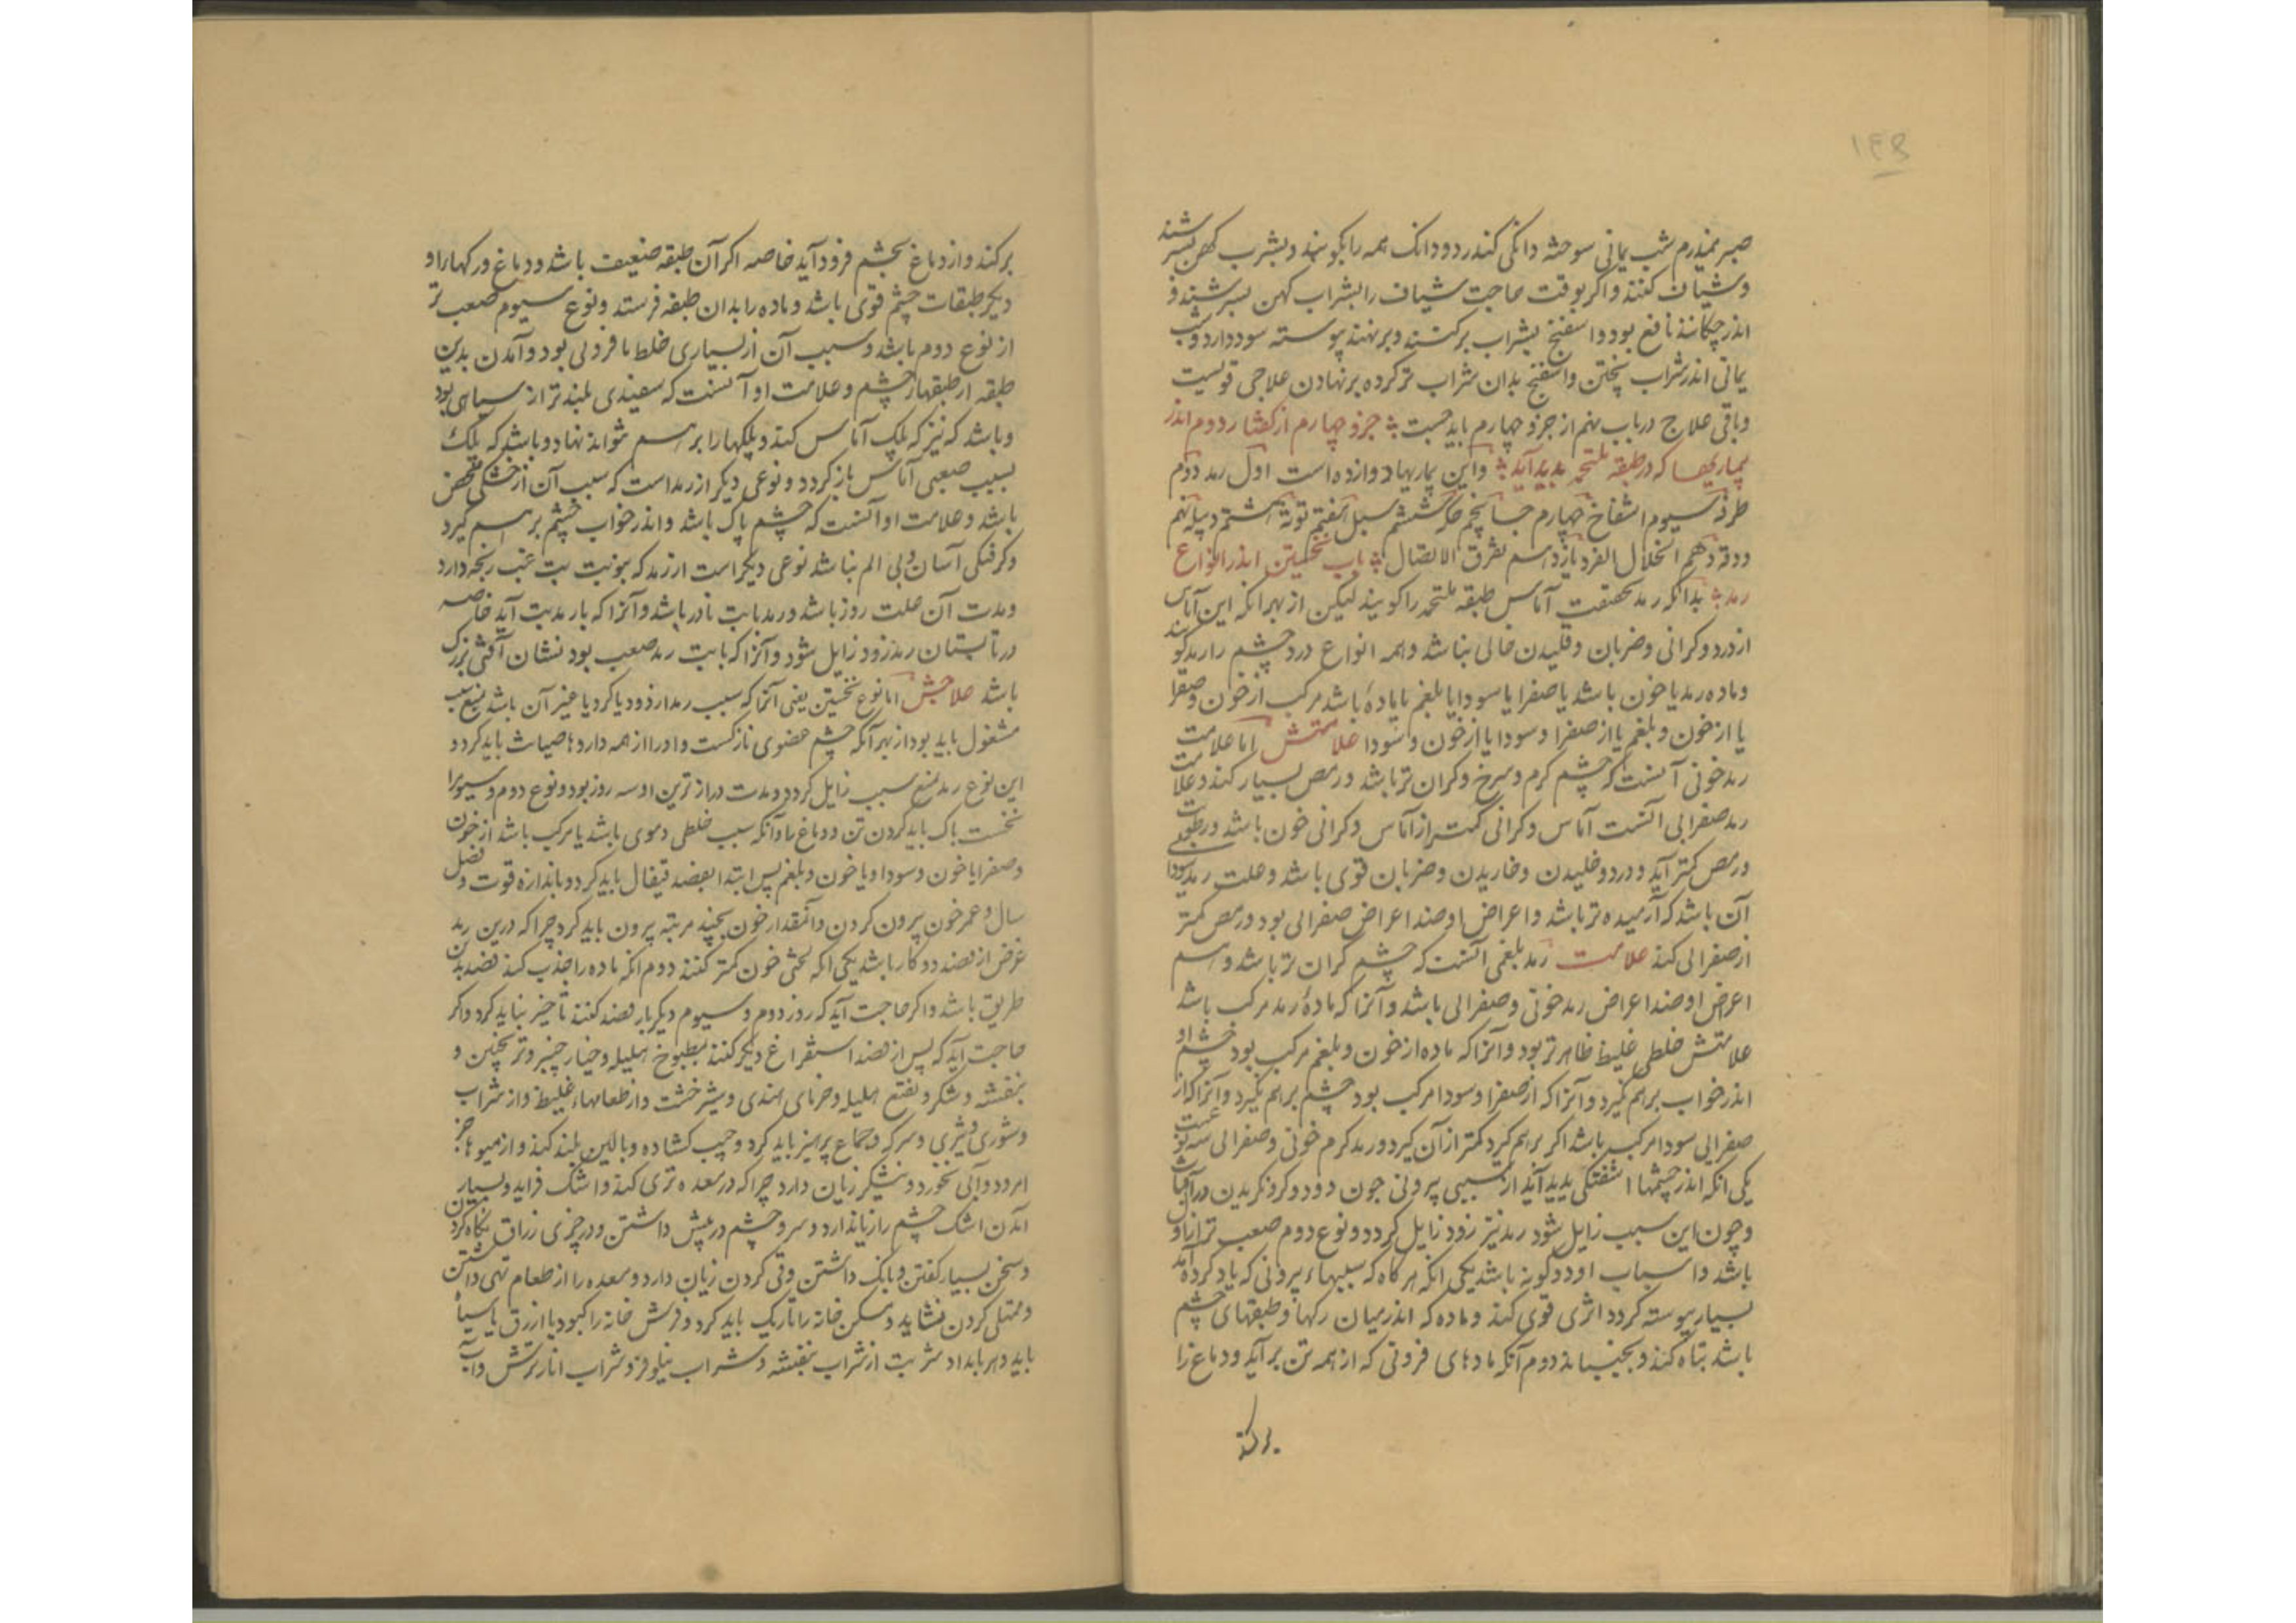 ۱۴۵
صبر نیمدرم شب یمانی سوخته دانکی کندر دودانک همه را بکوبند و بشراب کهن بسرشند
و شیاف کنند و اکر بوقت حاجت شیاف را بشراب کهن بسرشند و
اندر چکانند نافع بود و اسفنج بشراب ترکنند و برنهند پیوسته سود دارد و شب
یمانی اندر شراب پختن و اسفنج بدان شراب تر کرده برنهادن علاجی قویست
و باقی علاج در باب نهم از جزو چهارم باید جست جزو چهارم از کفتار دوم اندر
بیماریها که در طبقه ملتحمه پدید آید و این بیماریها دوازده است اول رمد دوم
طرفه سیوم انتفاخ چهارم جسا پنجم حکه ششم سبل هفتم توته هشتم دبیله نهم
ودقه دهم انحلال الفرد یازدهم تفرق الاتصال باب نخستین اندر انواع
رمد بدانکه رمد بحقیقت آماس طبقه ملتحمه را کویند لیکن از بهر انکه این آماس
از درد و کرانی و ضربان و خلیدن خالی نباشد و همه انواع درد چشم را رمد کویند
و ماده رمد یا خون باشد یا صفرا یا سودا یا بلغم یا ماده باشد مرکب از خون و صفرا
یا از خون و بلغم یا از صفرا و سودا یا از خون و سودا علامتش اما علامت
رمد خونی آنست که چشم کرم و سرخ و کران تر باشد و رمص بسیار کند و علامت
رمد صفرایی آنست آماس و کرانی کمتر از آماس و کرانی خون باشد و رطوبت
و رمص کمتر آید و درد و خلیدن و خاریدن و ضربان قوی باشد و علت رمد سودایی
آن باشد که آرمیده تر باشد و اعراض او ضد اعراض صفرایی بود و رمص کمتر
از صفرایی کند علامت رمد بلغمی آنست که چشم کران تر باشد و هم
اعراض او ضد اعراض رمد خونی و صفرایی باشد و آنرا که ماده رمد مرکب باشد
علامتش خلطی غلیظ ظاهر تر بود و آنرا که ماده از خون و بلغم مرکب بود چشم او
اندر خواب برهم نکیرد و آنرا که از صفرا و سودا مرکب بود چشم برهم نکیرد و آنرا که از
صفرایی سودا مرکب باشد اکر برهم کیرد کمتر از آن کیرد و رمد کرم خونی و صفرایی سه نوعست
یکی انکه اندر چشمها اشفتکی پدید آید از سببی بیرونی چون دود و کرد و نکریدن در آفتاب
و چون این سبب زایل شود رمد نیز زود زایل کردد و نوع دوم صعب تر از اول
باشد و اسباب او دو کونه باشد یکی انکه هر کاه که سببهاء بیرونی که یاد کرده آمد
بسیار پیوسته کردد اثری قوی کند و ماده که اندر میان رکها و طبقهای چشم
باشد تباه کند و بجنباند دوم آنکه مادهای فزونی که از همه تن برآید و دماغ را
برکند
برکند و از دماغ بچشم فرود آید خاصه اکر آن طبقه ضعیف باشد و دماغ و رکهارا و
دیکر طبقات چشم قوی باشد و ماده را بدان طبقه فرستد و نوع سیوم صعب تر
از نوع دوم باشد و سبب آن از بسیاری خلط با فزونی بود و آمدن بدین
طبقه از طبقها چشم و علامت او آنست که سفیدی بلندتر از سیاهی بود
و باشد که نیز که پلک آماس کند و پلکها را برهم نتواند نهاد و باشد که پلک
بسبب صعبی آماس باز کردد و نوعی دیکر از رمد است که سبب آن از خشکی محض
باشد و علامت او آنست که چشم پاک باشد و اندر خواب چشم برهم کیرد
و کرفتکی آسان و بی الم نباشد نوعی دیکر است از رمد که بنوبت تب غب رنجه دارد
و مدت آن هفت روز باشد و رمد با تب نادر باشد و آنرا که با رمد تب آید خاصه
در تابستان رمد زود زایل شود و آنرا که با تب رمد صعب بود نشان آفتی بزرک
باشد علاجش اما نوع نخستین یعنی آنرا که سبب رمد از دود یا کرد یا غیر آن باشد بمنع سبب
مشغول باید بود از بهر آنکه چشم عضوی نازکست و او را از همه دردها صیانت باید کرد و
این نوع رمد بمنع سبب زایل کردد و مدت درازترین او سه روز بود و نوع دوم و سیوم را
نخست پاک باید کردن تن و دماغ را و آنکه سبب خلطی دموی باشد یا مرکب باشد از خون
و صفرا یا خون و سودا و یا خون و بلغم پس ابتدا بفصد قیفال باید کرد و باندازه قوت و فصل
سال و عمر خون بیرون کردن و آنمقدار خون بچند مرتبه بیرون باید کرد چرا که درین رمد
غرض از فصد دو کار باشد یکی انکه لختی خون کمتر کنند دوم انکه ماده را جذب کند فصد بدین
طریق باشد و اکر حاجت آید که روز دوم و سیوم دیکر بار فصد کنند تأخیر نباید کرد و اکر
حاجت آید که پس از فصد استفراغ دیکر کنند بمطبوخ هلیله و خیار چنبر و ترنجبین و
بنفشه و شکر و نقیع هلیله و خرمای هندی و شیر خشت و از طعامهاء غلیظ و از شراب
و شوری و تیزی و سرکه و جماع پرهیز باید کرد و جیب کشاده و بالین بلند کند و از میوها جز
امرود و آبی نخورد و نیشکر زیان دارد چرا که در معده تری کند و اشک فزاید و بسیار
آمدن اشک چشم را زیان دارد و سر و چشم در پیش داشتن و در چیزی براق نکاه کردن
و سخن بسیار کفتن و بانک داشتن و قی کردن زیان دارد و معده را از طعام تهی داشتن
و ممتلی کردن نشاید و مسکن خانه را تاریک باید کرد و فرش خانه را کبود یا ازرق یا سیاه
باید و هر بامداد شربت از شراب بنفشه و شراب نیلوفر و شراب انار ترش و آب